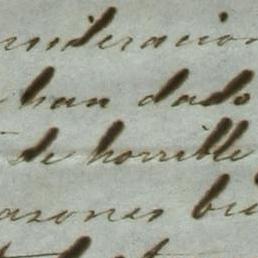 nsideracion
han dado
de horrible
azones bu